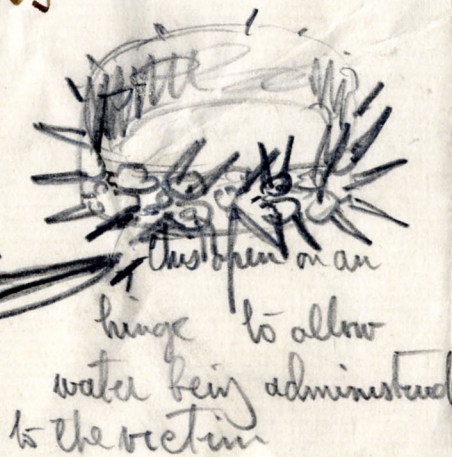 this open on an
hinge to allow
water being administered
to the victim